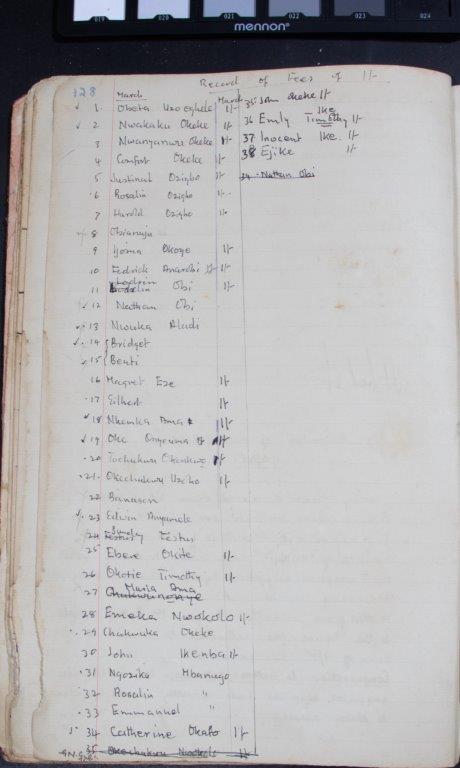 019 020 021 022 023 024
mennon
128
Record of Fees of 1/-
March
March
1. Obeta Uzoeghelu 1/-
2 Nwakaku Okeke 1/-
3 Nwanyanwu Okeke 1/-
4 Comfort Okeke 1/-
5 Justinal Ozigbo 1/-
6 Rosalin Ozigbo 1/-
7 Harold Ozigbo 1/-
8 Obianuju
9 Ijoma Okoye 1/-
10 Fedrick Anarobi 1/- 1/-
11 Obi 1/-
12 Nathan Obi
13 Nwuka Aladi
14 Bridget
15 Beati
16 Magret Eze 1/-
17 Gilbert 1/-
18 Nkemka Ama 1/-
19 Oke 1/-
20 Tochukwu Okonkwo 1/-
21. Okechukwu Uzoho 1/-
22 Banason
23 Edwin Anyamele
24 Sunday Festus
25 Ebere Okite 1/-
26 Okorie Timothy 1/-
27 Maria Ama
28 Emeka Nwokolo 1/-
29 Chukwuka Okeke
30 John Ikenba 1/-
31 Ngozika Mbanugo
32 Rosalin "
33 Emmanuel "
34 Catherine Okafo 1/-
35 Okechukwu Nwokolo 1/-
35 John Okeke 1/-
36 Emly Ike Timothy 1/-
37 Inocent Ike. 1/-
38 Ejike 1/-
39. Nathan Obi